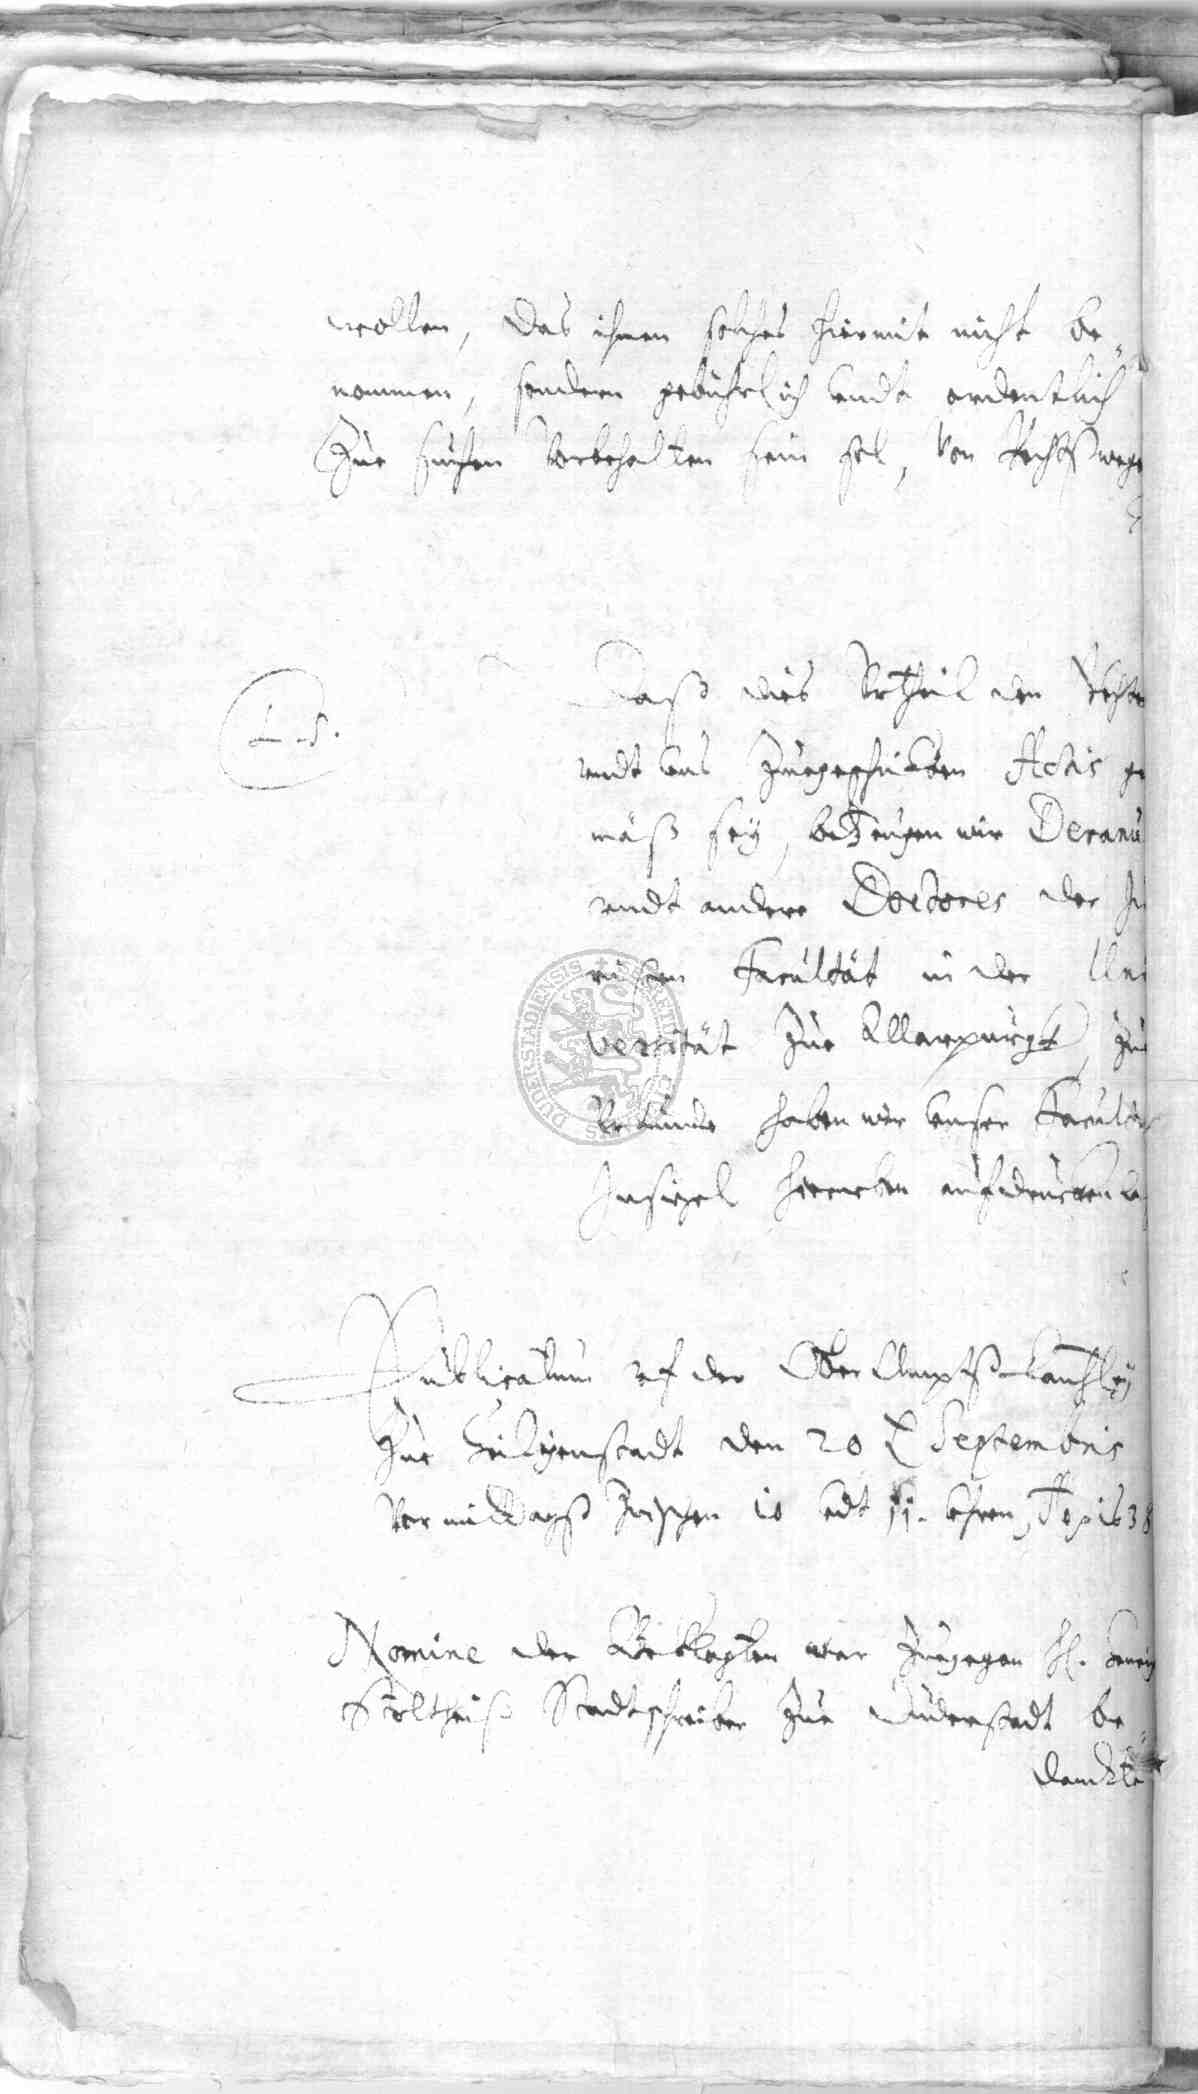 wollen, das ihnen solches hiermit nicht be„
nommen, sondern gebührlich undt ordentlich
Zue suchen Vorbehalten sein sol, Von Rechtßwege
L. S.
Daß dies Vrtheil den Rechte
undt uns Zuegeschickten Actis ge
mäß sey, beZeugen wir Decanu
undt andere Doctores der Ju
risten Facultät in der Uni
versität Zue Marpurgk, Zue
Vrkunde haben wir unser Facultet
Insigel hierneben aufdrucken
DUDERSTADIENSIS
Publicatum uf der Ober Ampts Cantzley
Zue Heiligenstadt den 20 Septembris
Vormittagß Zwischen 10 undt 11. Uhren,
Nomine der Beklagten war Zuegegen H.
Stadtschreiber Zue Duderstadt be„
danckte